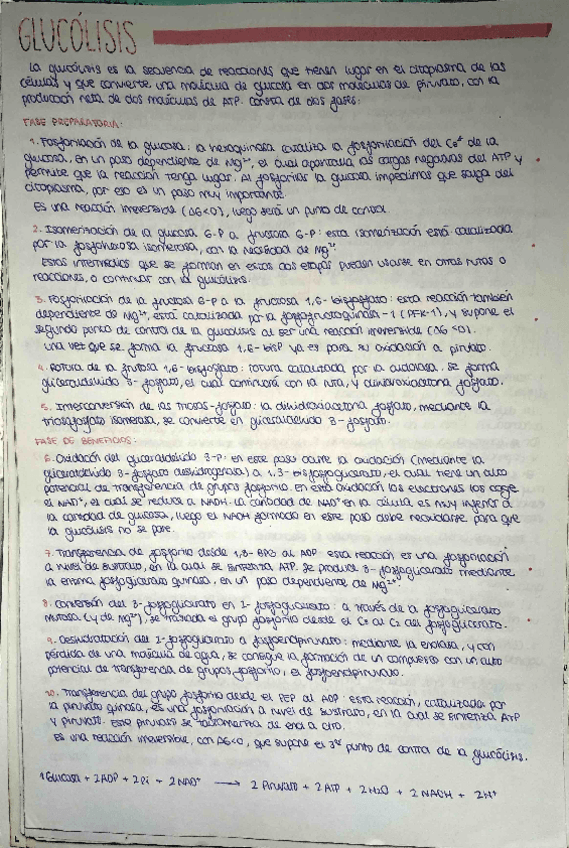 GLUCÓLISIS
La glucólisis es la secuencia de reacciones que tienen lugar en el citoplasma de las
células y que convierte una molécula de glucosa en dos moléculas de piruvato, con la
producción neta de dos moléculas de ATP. Consta de dos fases:
FASE PREPARATORIA:
1. Fosforilación de la glucosa: la hexoquinasa cataliza la fosforilación del C6 de la
glucosa, en un paso dependiente de Mg²⁺, el cual las cargas negativas del ATP y
permite que la reacción tenga lugar. Al fosforilar la glucosa impedimos que salga del
citoplasma, por eso es un paso muy importante.
Es una reacción irreversible (ΔG<0), luego será un punto de control.
2. Isomerización de la glucosa 6-P a fructosa 6-P: esta isomerización está catalizada
por la fosfohexosa isomerasa, con la necesidad de Mg²⁺.
Estos intermedios que se forman en estas dos etapas pueden usarse en otras rutas o
reacciones, o continuar con la glucólisis.
3. Fosforilación de la fructosa 6-P a la fructosa 1,6-bisfosfato: esta reacción también
dependiente de Mg²⁺, está catalizada por la fosfofructoquinasa-1 (PFK-1), y supone el
segundo punto de control de la glucólisis al ser una reacción irreversible (ΔG<0).
Una vez que se forma la fructosa 1,6-bisP ya es para su oxidación a piruvato.
4. Rotura de la frutosa 1,6-bisfosfato: rotura catalizada por la aldolasa. Se forma
gliceraldehído 3-fosfato, el cual continuará con la ruta, y dihidroxiacetona fosfato.
5. Interconversión de las triosas-fosfato: la dihidroxiacetona fosfato, mediante la
triosafosfato isomerasa, se convierte en gliceraldehído 3-fosfato.
FASE DE BENEFICIOS:
6. Oxidación del gliceraldehído 3-P: en este paso ocurre la oxidación (mediante la
gliceraldehído 3-fosfato deshidrogenasa) a 1,3-bisfosfoglicerato, el cual tiene un alto
potencial de transferencia de grupos fosforilo. En esta oxidación los electrones los coge
el NAD⁺, el cual se reduce a NADH. La cantidad de NAD⁺ en la célula es muy inferior a
la cantidad de glucosa, luego el NADH formado en este paso debe reciclarse para que
la glucólisis no se pare.
7. Transferencia de fosforilo desde 1,3-BPG al ADP: esta reacción es una fosforilación
a nivel de sustrato, en la cual se sintetiza ATP. Se produce 3-fosfoglicerato mediante
la enzima fosfoglicerato quinasa, en un paso dependiente de Mg²⁺.
8. Conversión del 3-fosfoglicerato en 2-fosfoglicerato: a través de la fosfoglicerato
mutasa (y de Mg²⁺), se traslada el grupo fosforilo desde el C3 al C2 del fosfoglicerato.
9. Deshidratación del 2-fosfoglicerato a fosfoenolpiruvato: mediante la enolasa, y con
pérdida de una molécula de agua, se consigue la formación de un compuesto con un alto
potencial de transferencia de grupos fosforilo, el fosfoenolpiruvato.
10. Transferencia del grupo fosforilo desde el PEP al ADP: esta reacción, catalizada por
la piruvato quinasa, es una fosforilación a nivel de sustrato, en la cual se sintetiza ATP
y piruvato. Este piruvato se tautomeriza de enol a ceto.
Es una reacción irreversible, con ΔG<0, que supone el 3er punto de control de la glucólisis.
1 Glucosa + 2ADP + 2Pi + 2NAD⁺ ⟶ 2 Piruvato + 2ATP + 2H₂O + 2NADH + 2H⁺